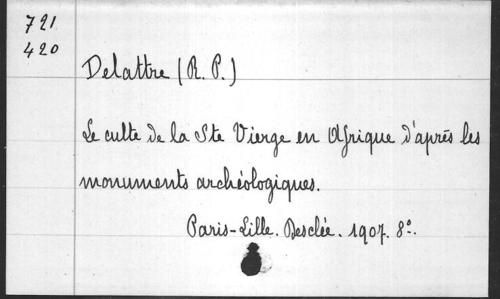 721
420
Delattre (R. P.)
Le culte de la Ste Vierge en Afrique d'après les
monuments archéologiques.
Paris-Lille. Desclée. 1907. 8º.